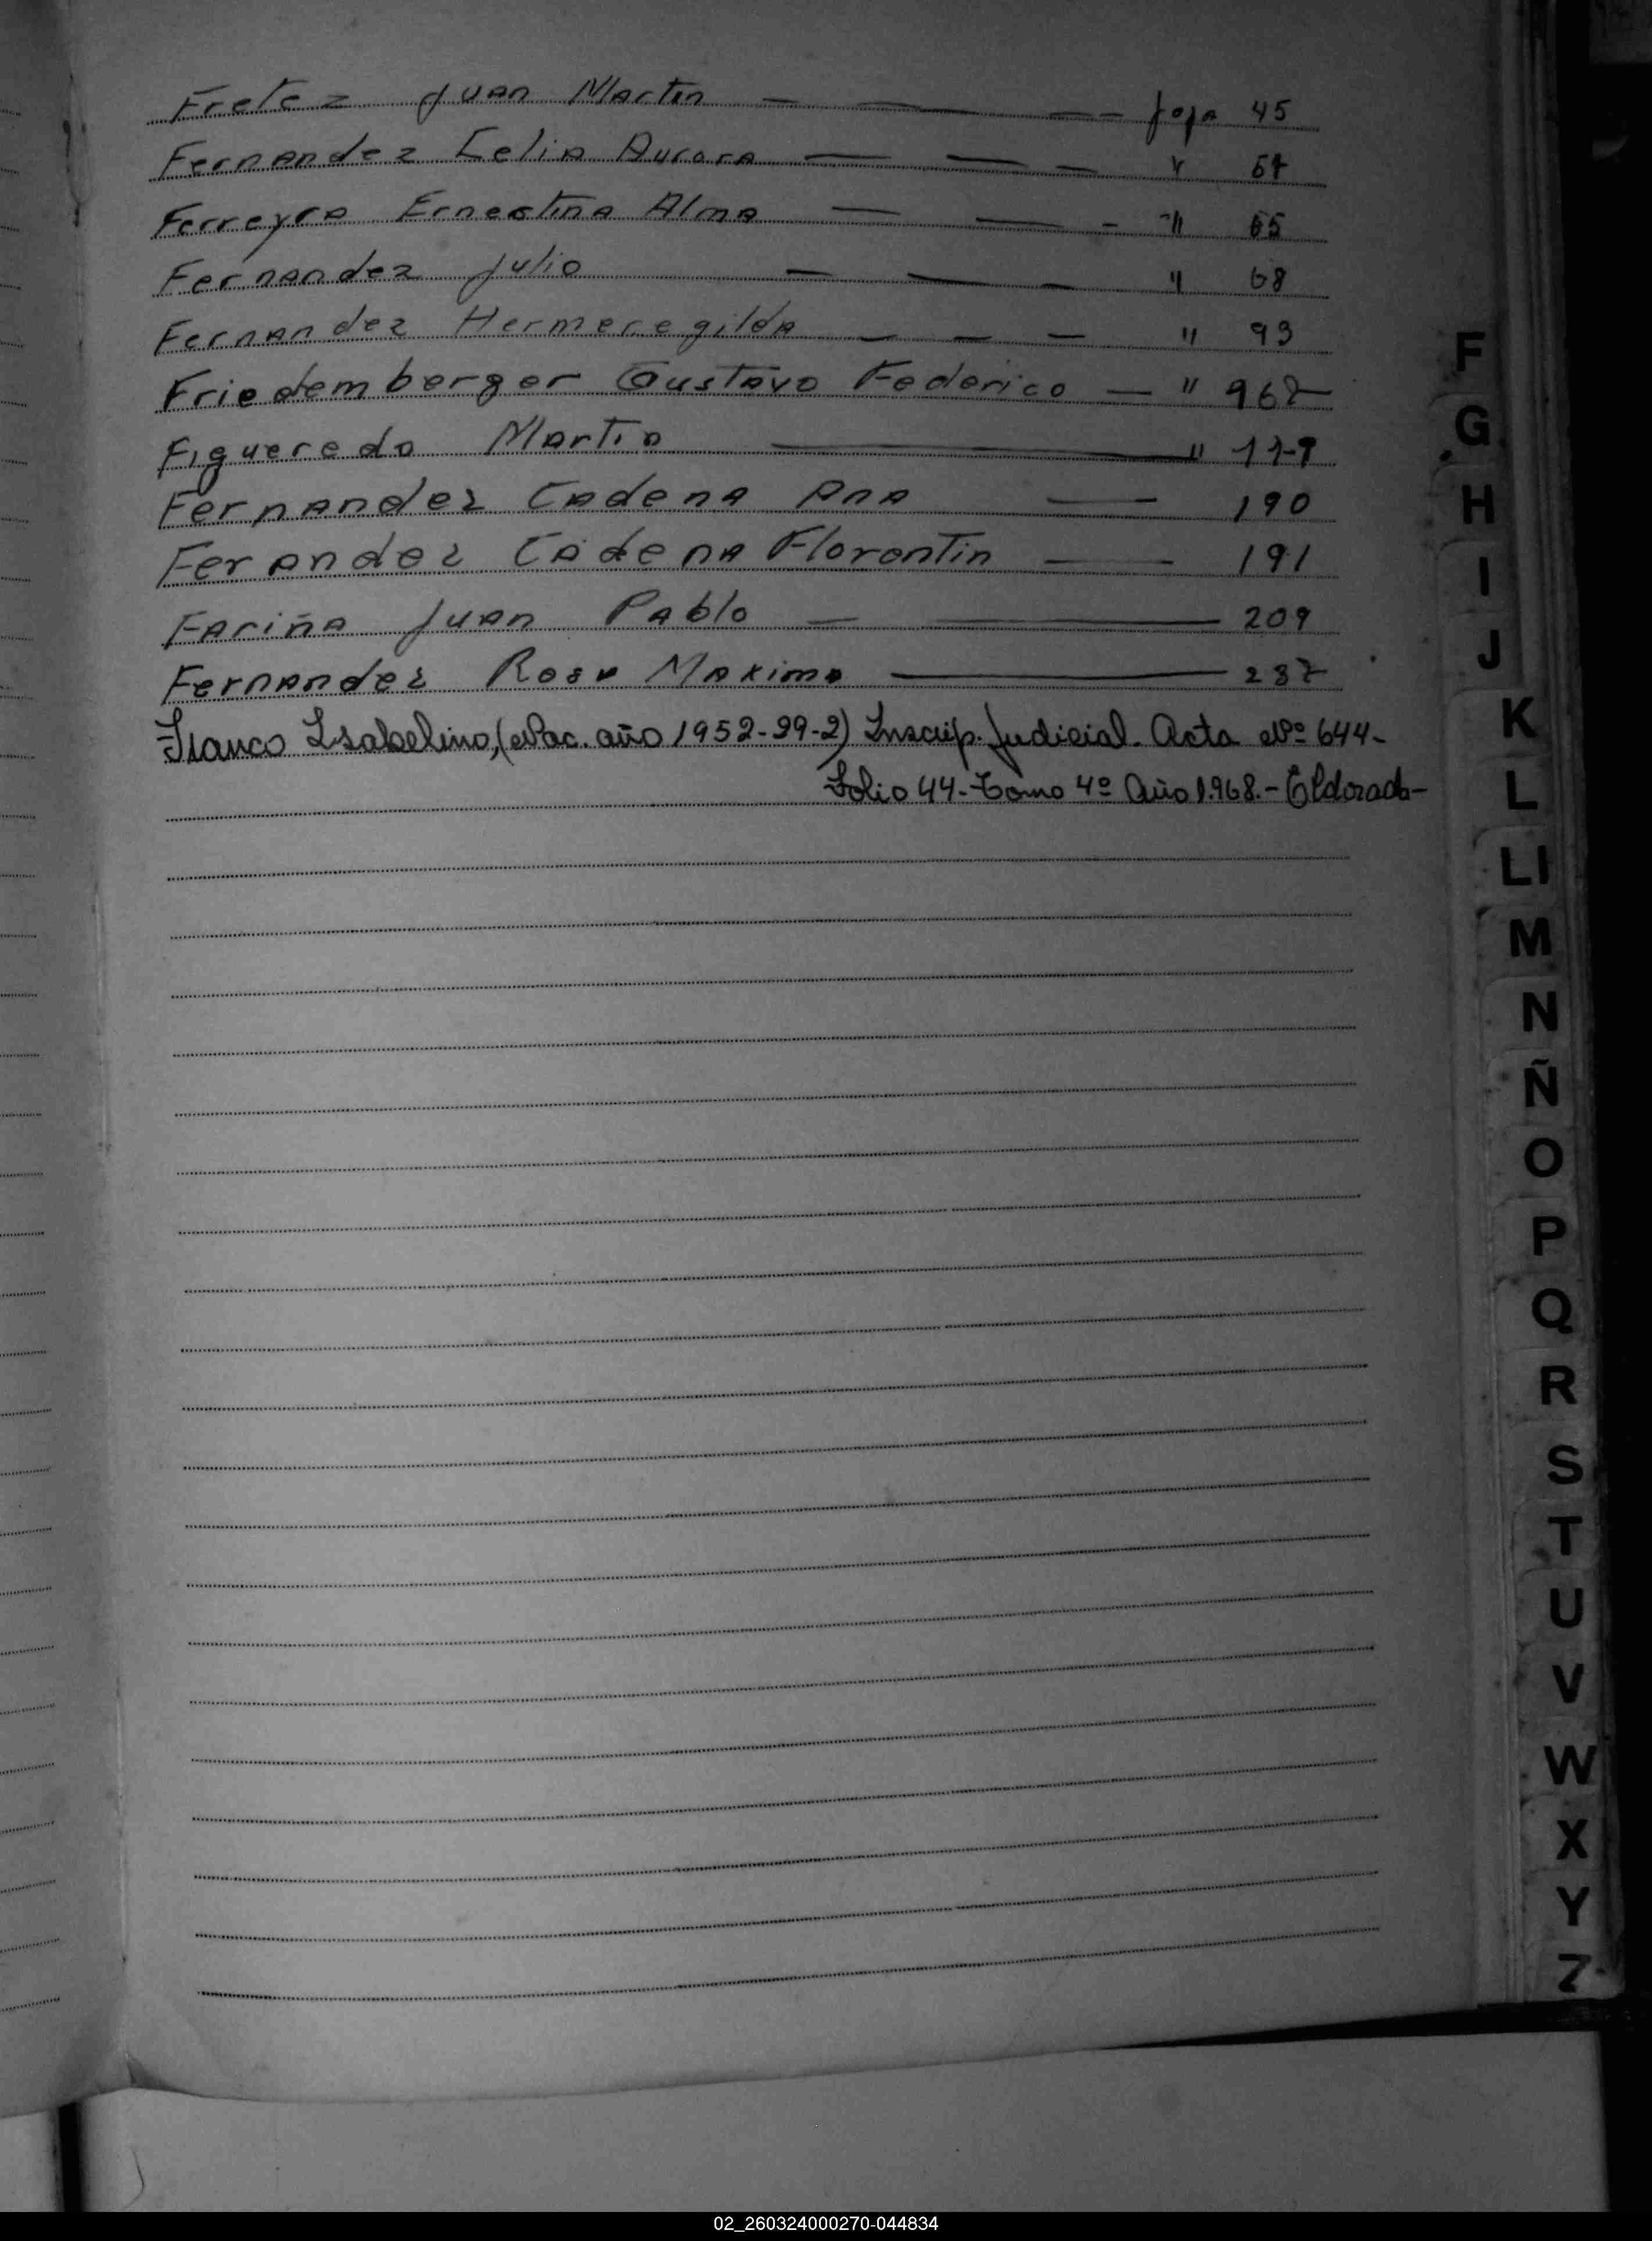 Fretez Juan Martin — — — foja 45
Fernandez Celia Aurora — — — " 57
Ferreyra Ernestina Alma — — - " 65
Fernandez Julio — — — " 68
Fernandez Hermeregilda — — — " 93
Friedemberger Gustavo Federico — " 967
Figueredo Martin — " 117
Fernandez Cadena Ana — 190
Ferandez Cadena Florentin — 191
Fariña Juan Pablo — — 209
Fernandez Rosa Maxima — 237
Franco Isabelino, (Nac. año 1952-29-2) Inscrip. Judicial. Acta Nº 644-
Folio 44-Tomo 4º Año 1.968.- Eldorado-
F
G
H
I
J
K
L
Ll
M
N
Ñ
O
P
Q
R
S
T
U
V
W
X
Y
Z
02_260324000270-044834